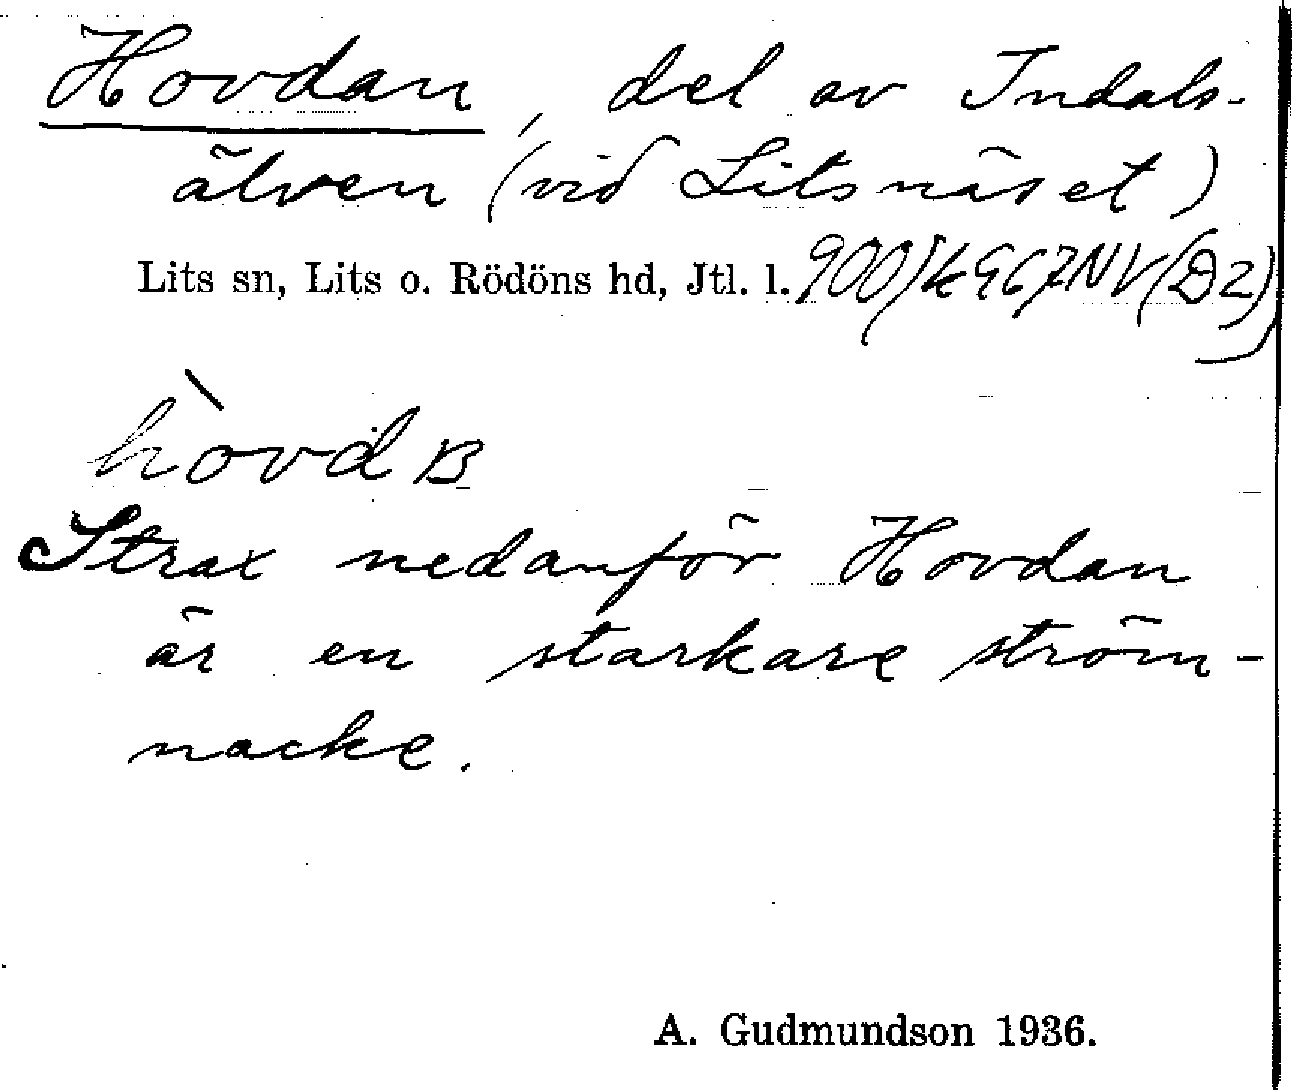 Hovdan, del av Indals-
älven (vid Litsnäset)
Lits sn, Lits o. Rödöns hd, Jtl. l.
Strax nedanför Hovdan
är en starkare ström-
nacke.
A. Gudmundson 1936.